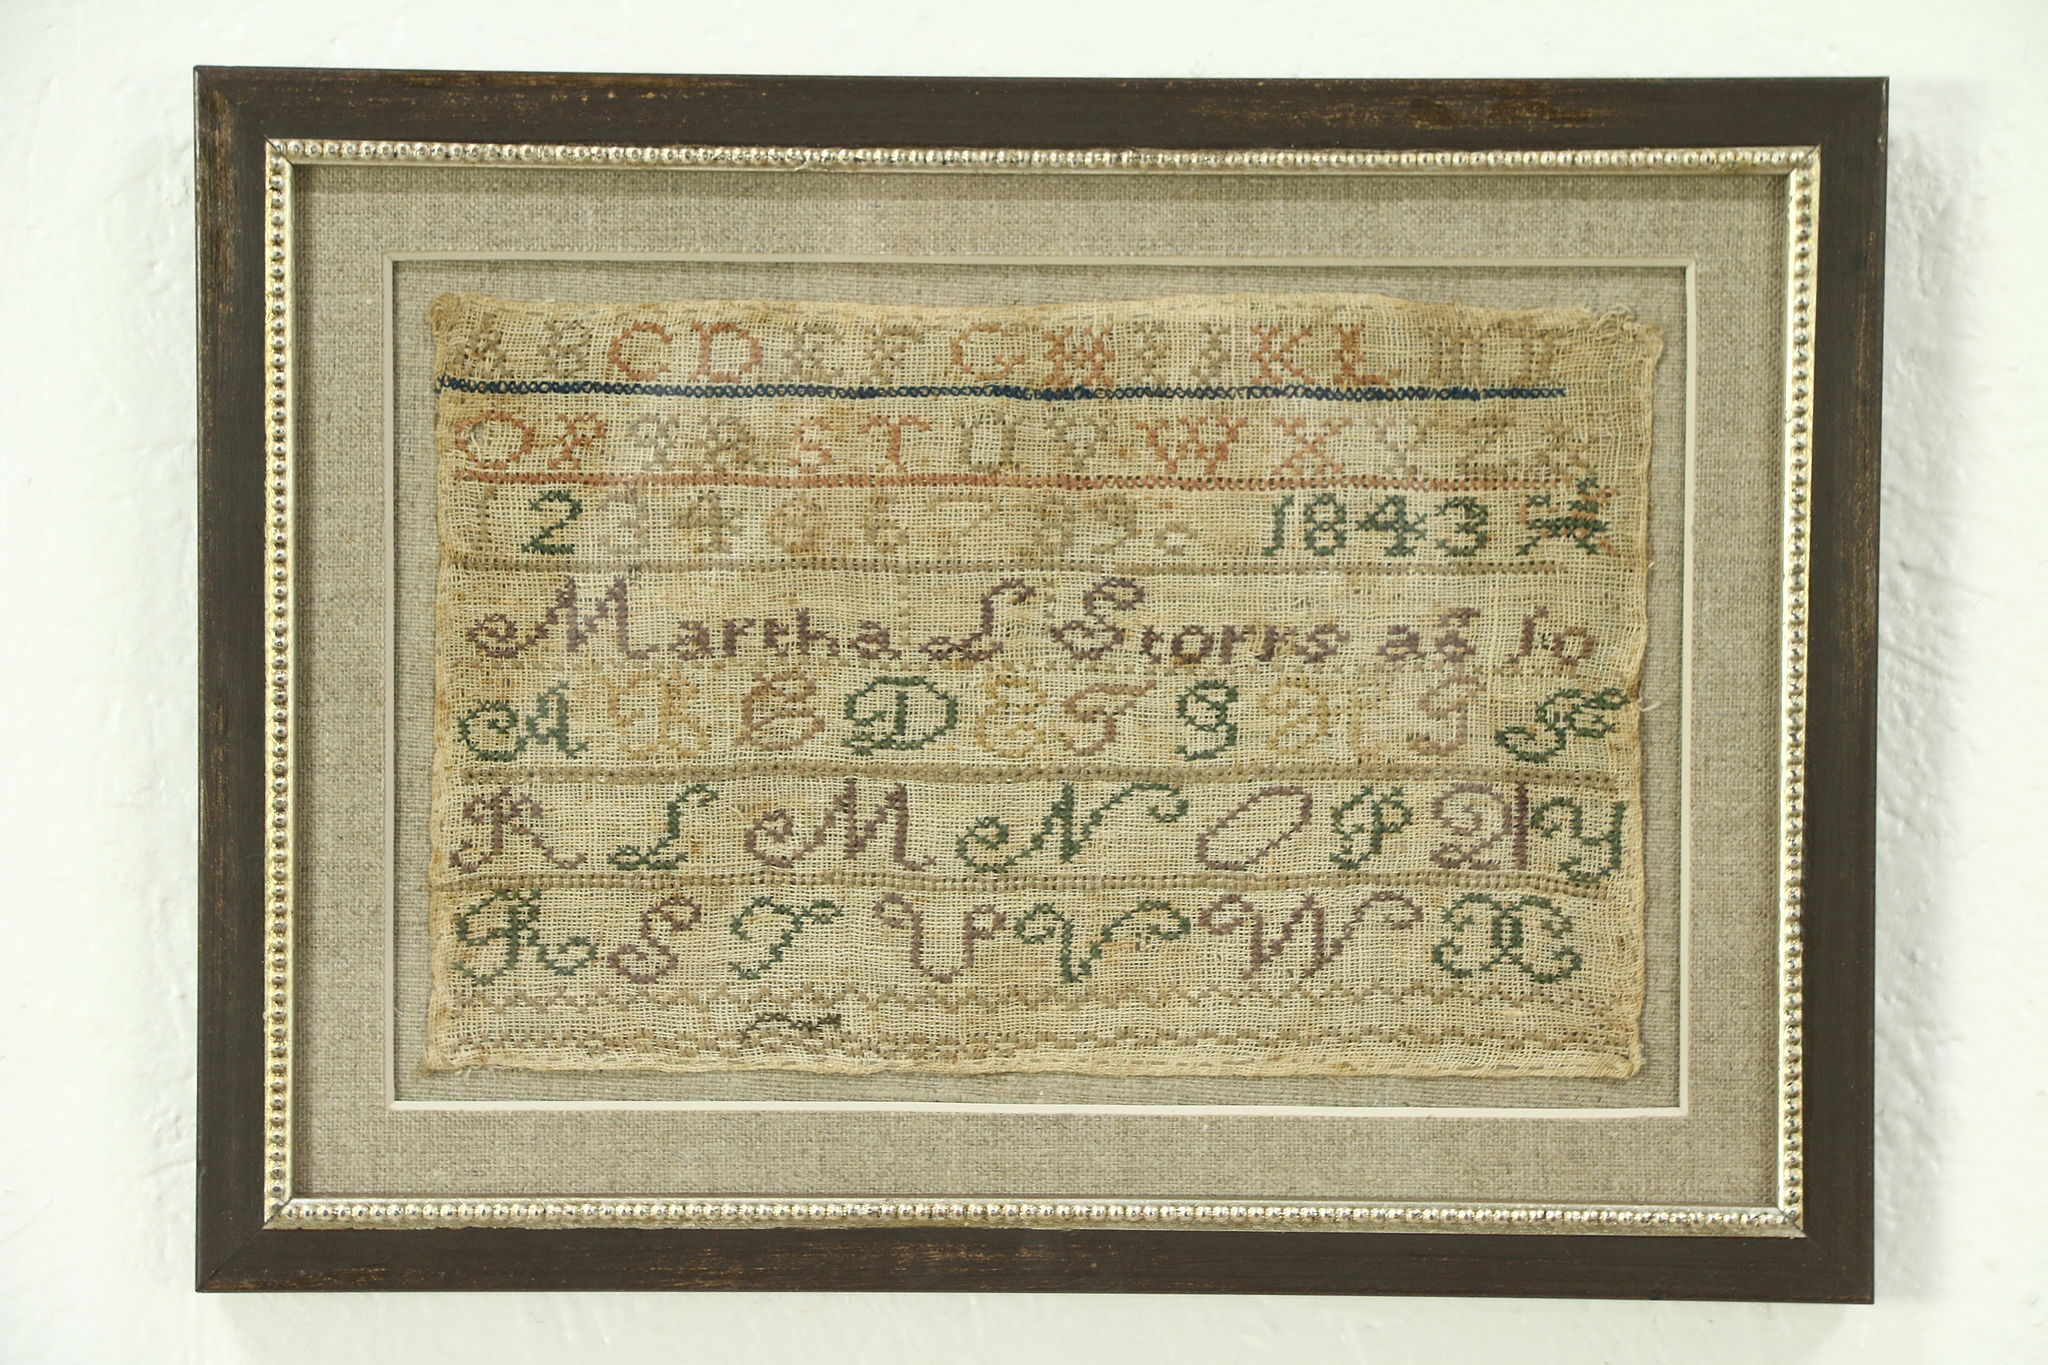 A B C D E F G H I J K L M N
O P Q R S T U V W X Y Z &
1 2 3 4 5 6 7 8 9 0 1843
Martha L Storrs ag 10
A B C D E F G H I J
K L M N O P Q Y
R S T U V W X